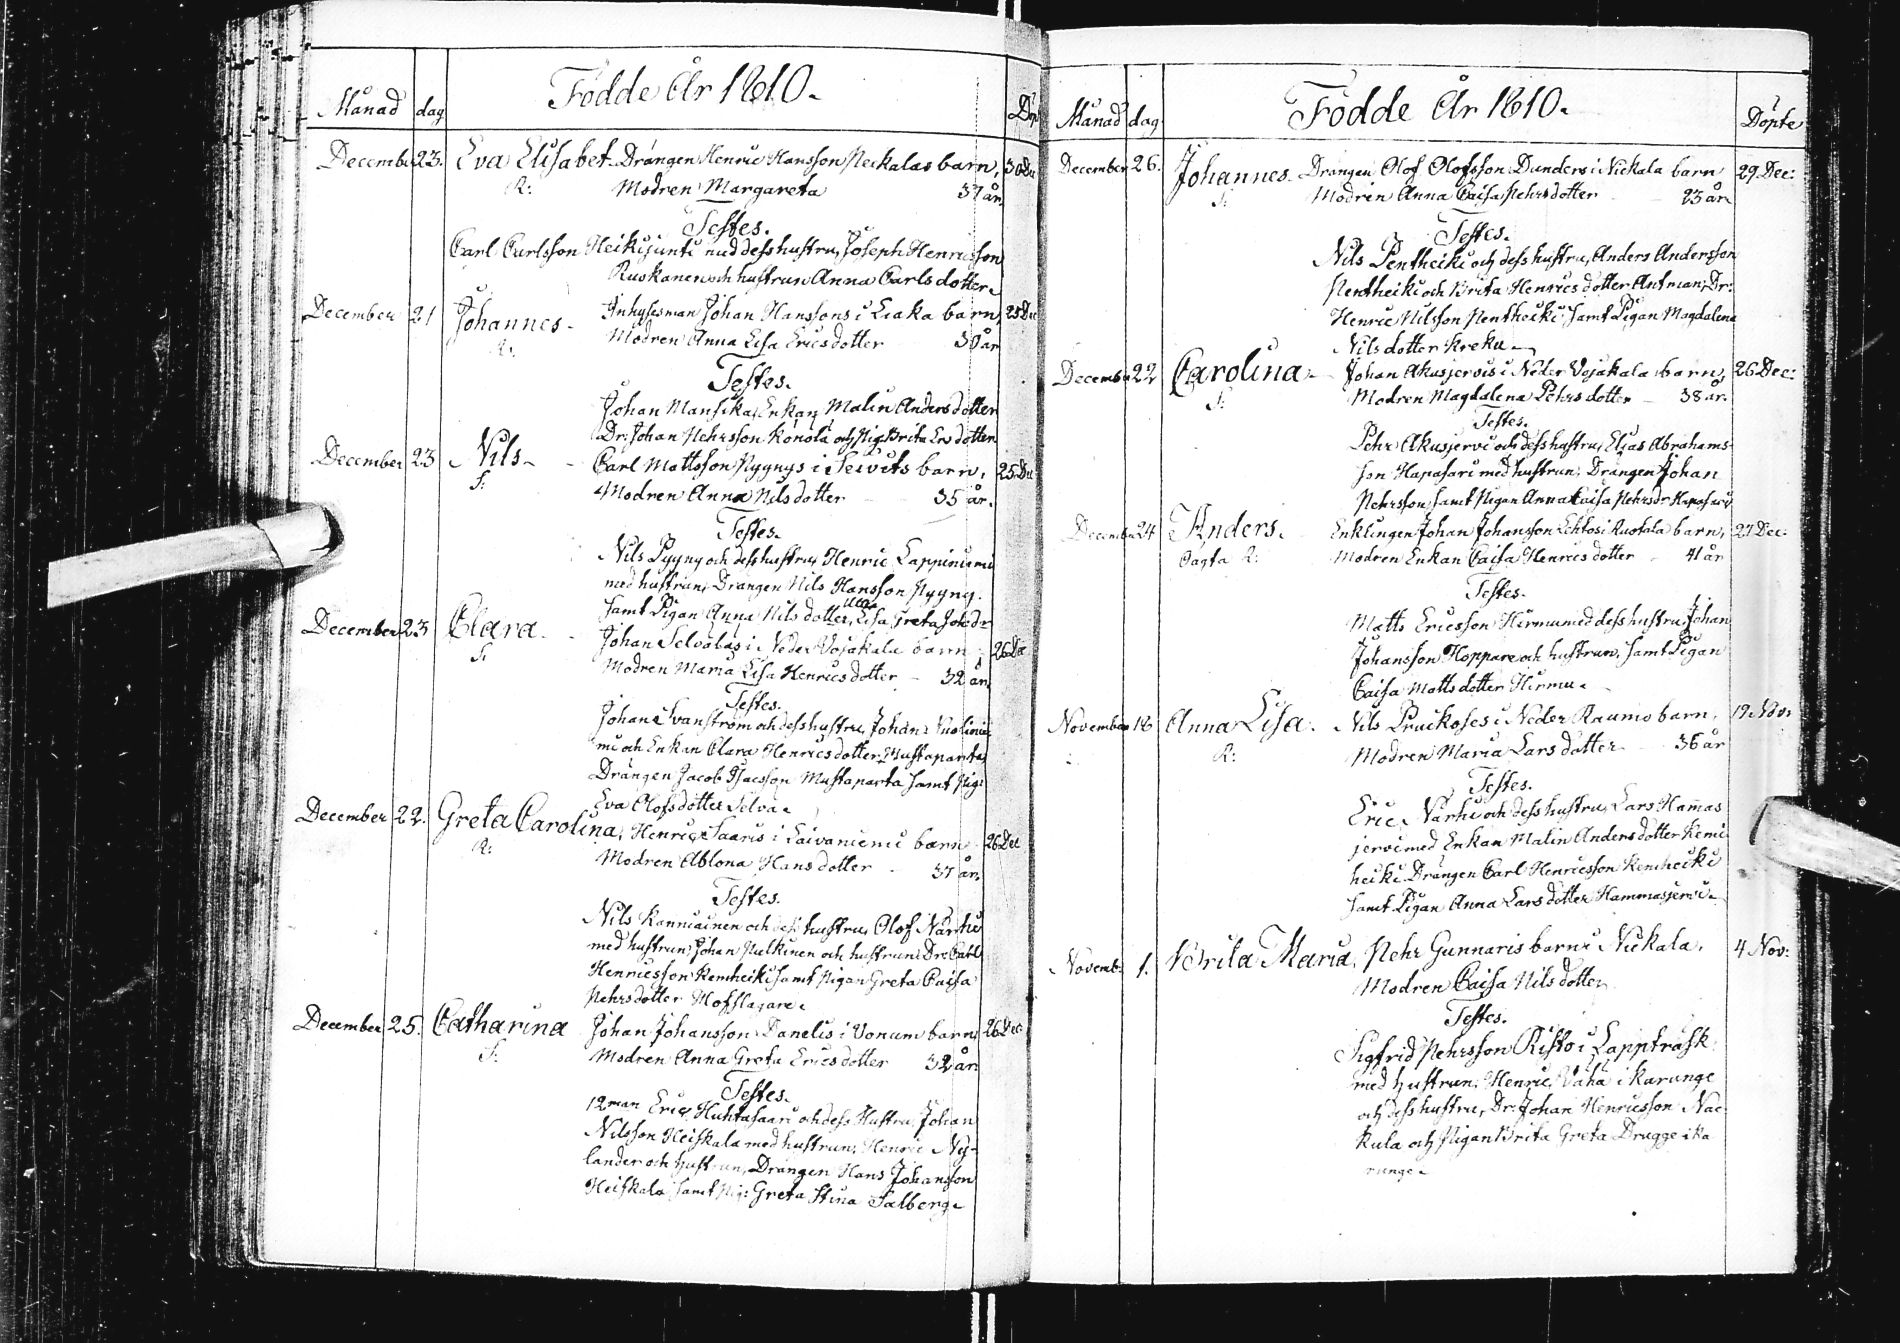 Födde År 1810.
Månad dag Döp
December 23. Eva Elisabet. Drängen Henric Hansson Neckalas barn, 30 De
R: Modren Margareta 37 år.
Testes.
Carl Carlsson Heikijunti med dess hustru, Joseph Henricsson
Ruskanen och hustrun Anna Carls dotter.
December 21 Johannes. Inhysesman Johan Hanssons i Liaka barn, 25 De
R: Modren Anna Lisa Erics dotter 30 år
Testes.
Johan Mansika, Enkan Malin Anders dotter
Dr: Johan Pehrsson Könölä och Pig: Brita Ers dotter
December 23 Nils. Carl Mattsson Pyynys i Seivits barn, 25 De
S: Modren Anna Nils dotter 35 år.
Testes.
Nils Pyyny och dess hustru, Henric Lappiniemi
med hustrun, Drängen Nils Hansson Pyyny.
samt Pigan Anna Nils dotter, Lisa Greta Joh: dr
December 23 Clara. Johan Selvälas i Neder Vojakala barn 26 De
S: Modren Maria Lisa Henrics dotter 32 år.
Testes.
Johan Svanström och dess hustru, Johan Vuoliniemi
mi och Enkan Clara Henrics dotter Mustaparta,
Drängen Jacob Isacsson Mustaparta samt Pig:
Eva Olofs dotter Selvä.
December 22. Greta Carolina, Henric Saaris i Laivaniemi barn 26 Dec
R: Modren Ablona Hans dotter 37 år.
Testes.
Nils Kanniainen och dess hustru, Olof Närhi
med hustrun, Johan Pulkinen och hustrun, Dr: Carl
Henricsson Kemheiki samt Pigan Greta Caisa
Pehrs dotter Hofslagare.
December 25. Catharina Johan Johansson Danelis i Vonum barn, 26 Dec
S: Modren Anna Greta Erics dotter 32 år.
Testes.
12 man Eric Huhtasaari och dess Hustru, Johan
Nilsson Heiskala med hustrun, Henric Ny-
lander och hustrun, Drängen Hans Johansson
Heiskala samt Pig: Greta Stina Salberg.
Födde År 1810.
Månad dag Döpte
December 26. Johannes. Drängen Olof Olofsson Dunders i Nickala barn 29 Dec:
S: Modren Anna Caisa Pehrs dotter 23 år
Testes.
Nils Pentheiki och dess hustru, Anders Andersson
Pentheiki och Brita Henrics dotter Antman, Dr:
Henric Nilsson Pentheiki samt Pigan Magdalena
Nils dotter Kreku.
December 22 Carolina. Johan Akusjervis i Neder Vojakala barn, 26 Dec:
S: Modren Magdalena Pehrs dotter 38 år.
Testes.
Pehr Akusjervi och dess hustru, Elias Abrahams-
son Hapasari med hustrun, Drängen Johan
Pehrsson samt Pigan Anna Caisa Pehrs dr Hapasari
December 24 Anders. Enklingen Johan Johansson Lehtos i Ruotala barn, 27 Dec:
Oägta R: Modren Enkan Caisa Henrics dotter 41 år
Testes.
Matts Ericsson Hirmu med dess hustru, Johan
Johansson Hoppare och hustrun, samt Pigan
Caisa Matts dotter Hirmu.
November 16 Anna Lisa. Nils Pruikoses i Neder Raumo barn, 19 Nov:
R: Modren Maria Lars dotter 36 år
Testes.
Eric Närhi och dess hustru, Lars Hamas
jervi med Enkan Malin Anders dotter Kemi
heiki Drängen Carl Henricsson Kemheiki
samt Pigan Anna Lars dotter Hammasjervi.
Novemb: 1. Brita Maria, Pehr Gunnaris barn i Nickala. 4 Nov:
Modren Caisa Nils dotter,
Testes.
Sigfrid Pehrsson Risto i Lappträsk
med hustrun, Henric Vähä i Karunge
och dess hustru, Dr: Johan Henricsson Nac-
kula och Pigan Brita Greta Drugge i Ka
runge.